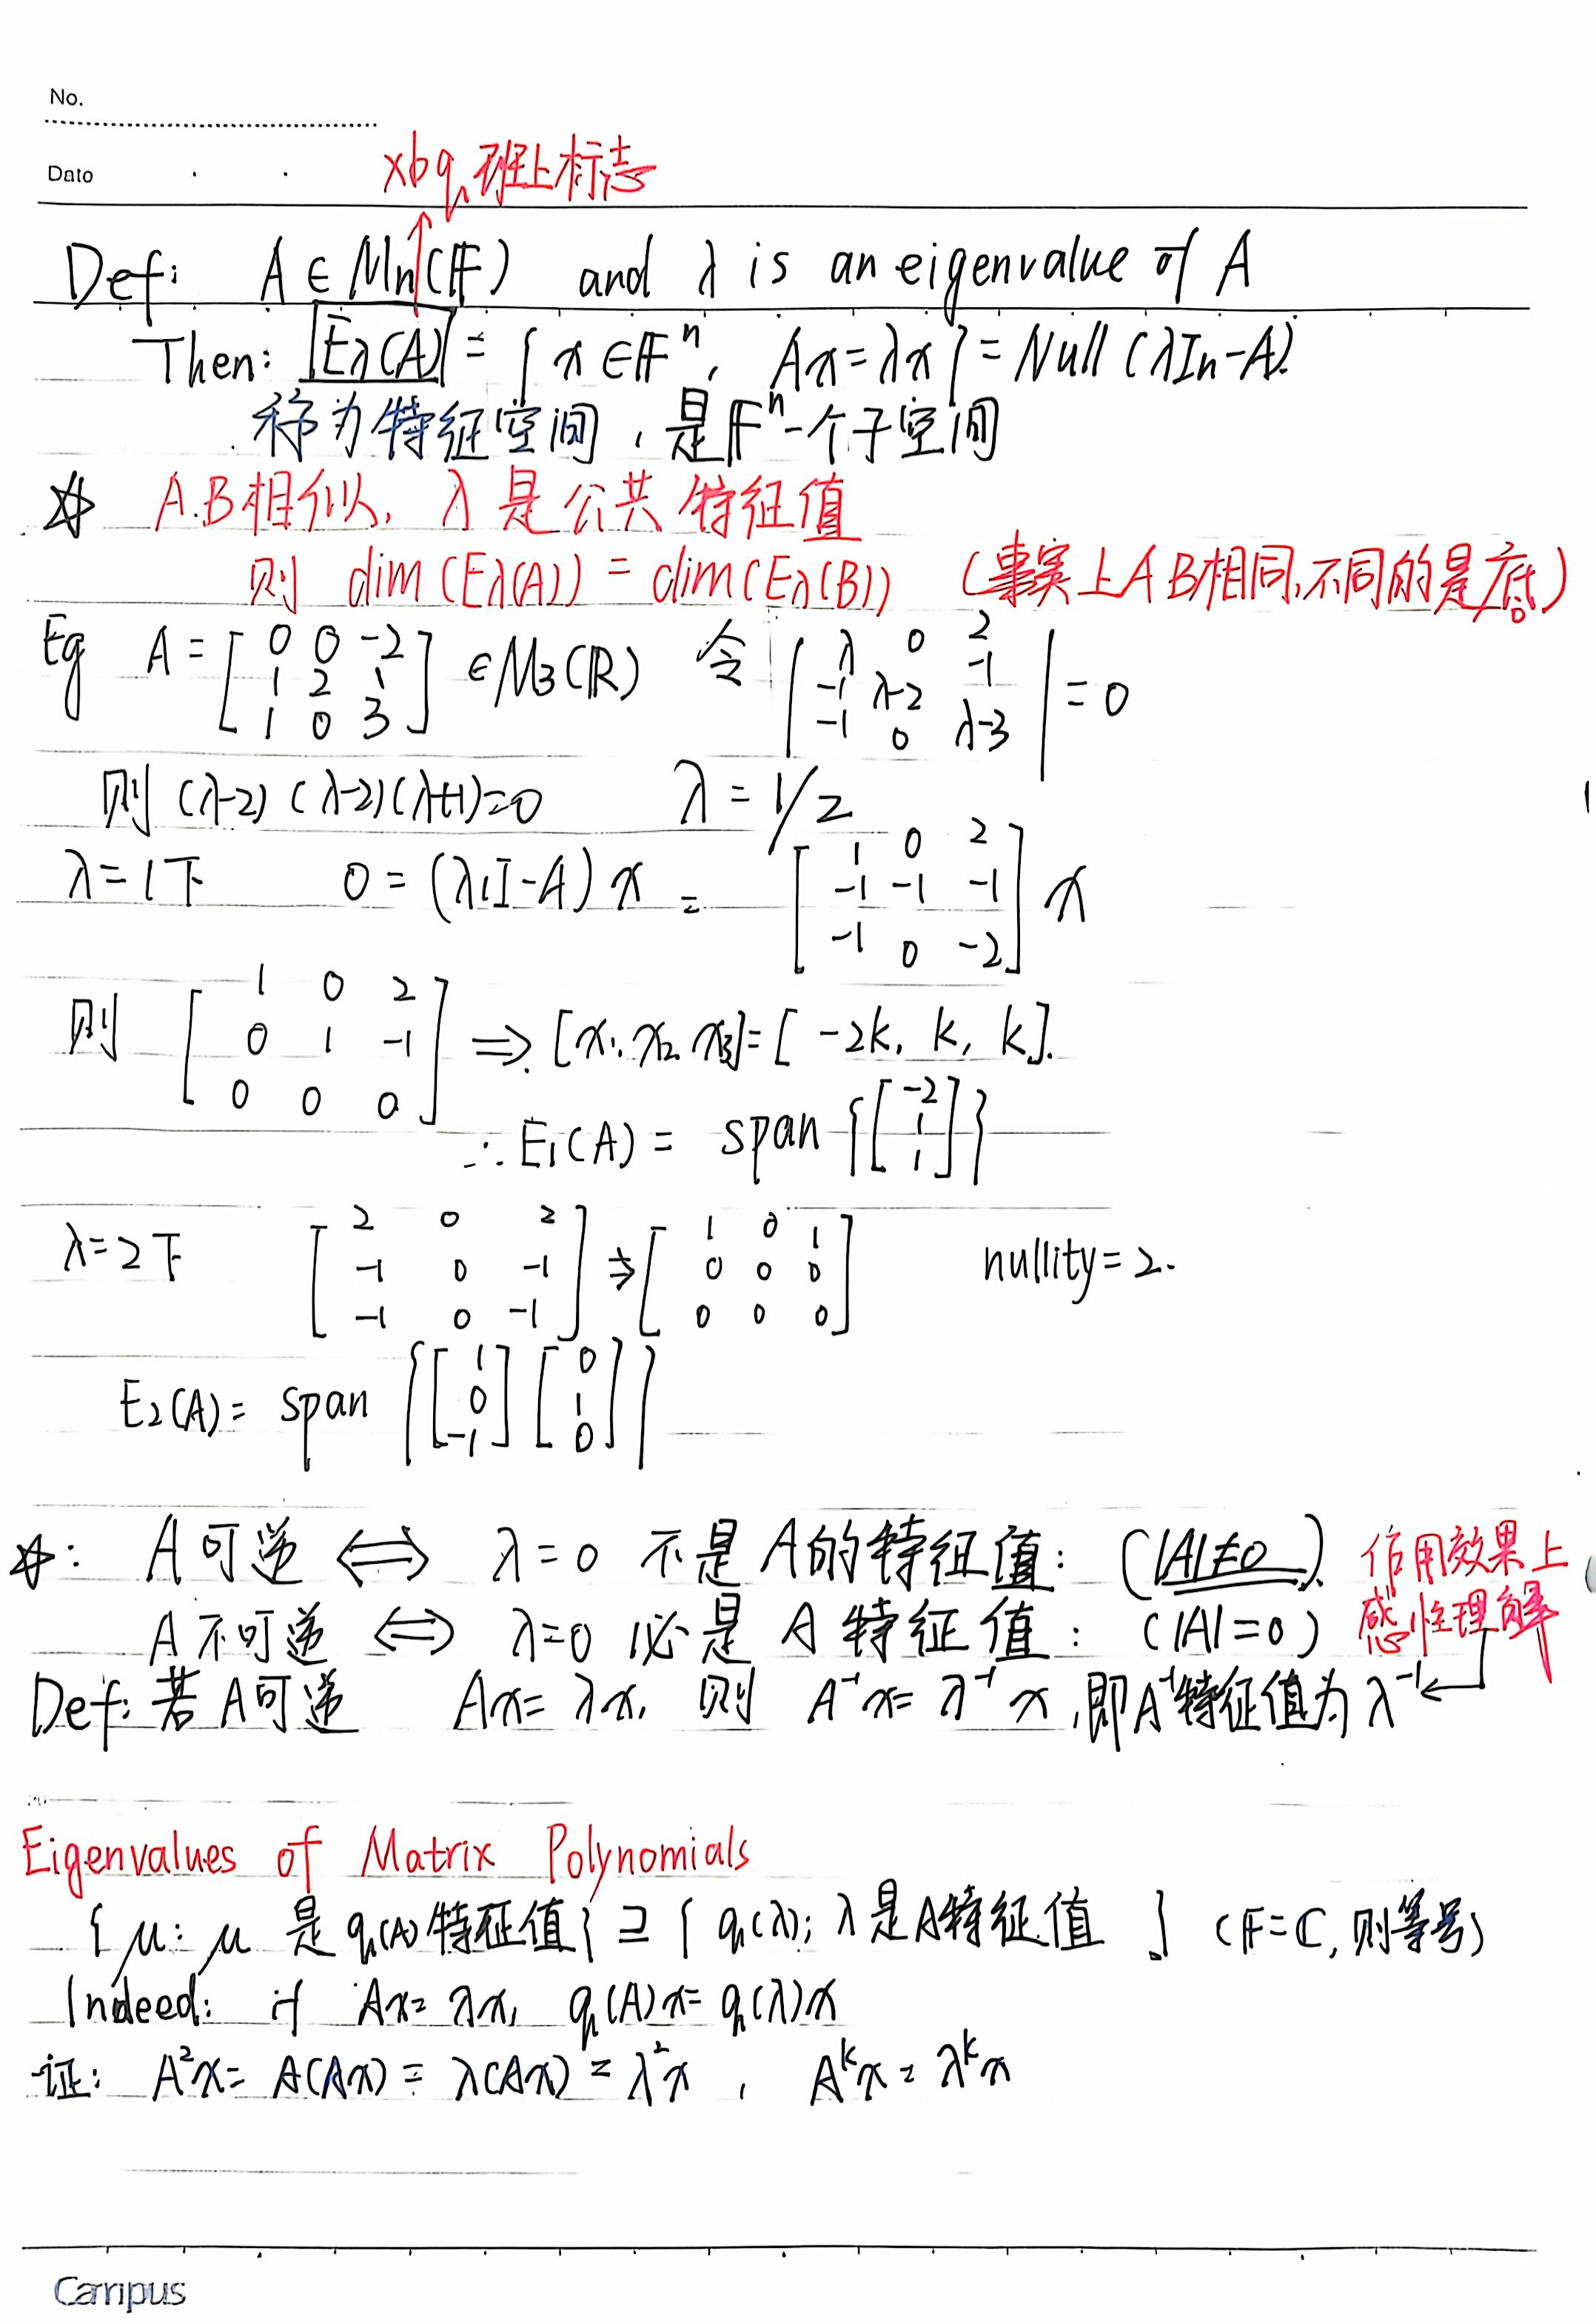 No.
Date
xbq班上标志
Def: A ∈ Mn(F) and λ is an eigenvalue of A
Then: Eλ(A) = { x ∈ Fⁿ, Ax = λx } = Null (λIn-A).
称为特征空间，是Fⁿ一个子空间
☆ A.B相似, λ 是公共特征值
则 dim (Eλ(A)) = dim(Eλ(B)) (事实上AB相同,不同的是底)
Eg A = [0 0 -2; 1 2 1; 1 0 3] ∈ M3(R) 令 |λ 0 2; -1 λ-2 -1; -1 0 λ-3| = 0
则 (λ-2) (λ-2)(λ+1)=0 λ = 1/2
λ=1下 0 = (λ1I-A) x = [1 0 2; -1 -1 -1; -1 0 -2] x
则 [1 0 2; 0 1 -1; 0 0 0] ⇒ [x1, x2, x3] = [-2k, k, k].
∴ E1(A) = span {[-2; 1; 1]}
λ=2下 [2 0 2; -1 0 -1; -1 0 -1] ⇒ [1 0 1; 0 0 0; 0 0 0] nullity=2.
E2(A) = span {[1; 0; -1] [0; 1; 0]}
☆: A可逆 ⇔ λ=0 不是A的特征值: (|A|≠0). 作用效果上
A不可逆 ⇔ λ=0 必是A特征值: (|A|=0) 感性理解
Def: 若A可逆 Ax=λx, 则 A⁻¹x=λ⁻¹x, 即A⁻¹特征值为λ⁻¹←
Eigenvalues of Matrix Polynomials
{μ: μ 是q(A)特征值} ⊇ { q(λ); λ是A特征值 } (F=C, 则等号)
Indeed: if Ax=λx, q(A)x=q(λ)x
证: A²x = A(Ax) = λ(Ax) = λ²x , Aᵏx = λᵏx
Campus